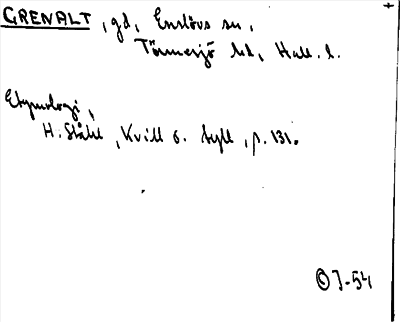 GRENALT, gd, Enslövs sn,
Tönnersjö hd, Hall. l.
Etymologi,
H. Ståhl, Kvill o. tyll, p. 131.
© J-54